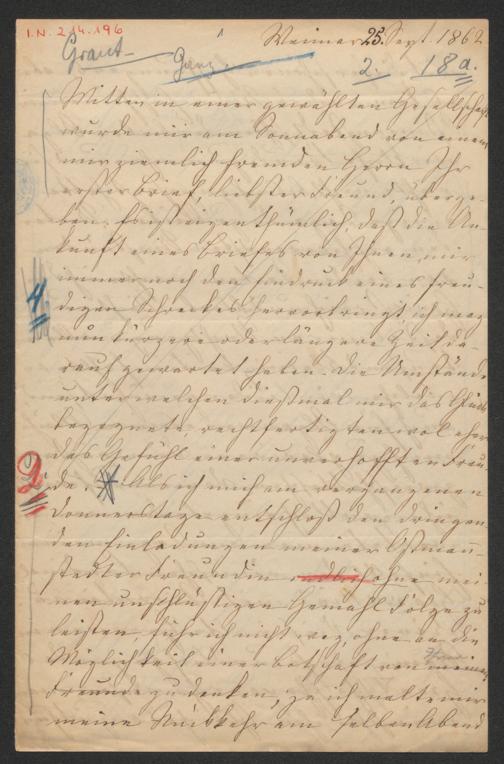 I.N. 214.196
Weimar 25. Sept. 1862
Grant
Ganz.
2. 18a.
Mitten in einer gewählten Gesellschaft
wurde mir am Sonnabend von einem
mir ziemlich fremden Herrn Ihr
erster Brief, liebster Freund, überge-
ben. Es ist eigenthümlich, daß die An-
kunft eines Briefes von Ihnen mir
immer noch den Eindruck eines freu-
digen Schreckes hervorbringt, ich mag
nun kürzere oder längere Zeit da-
rauf gewartet haben. Die Umstände
unter welchen dießmal mir das Glück
begegnete, rechtfertigten wol eher
das Gefühl einer unverhofften Freu-
de. Als ich mich am vergangenen
Donnerstage entschloß den dringen-
den Einladungen meiner Oßmann-
stedter Freundin endlich ohne mei-
nen unschlüssigen Gemahl Folge zu
leisten, fuhr ich nicht weg, ohne an die
Möglichkeit einer Botschaft von meinem
Freunde zu denken, ja ich malte mir
meine Rückkehr am selben Abend
4
2